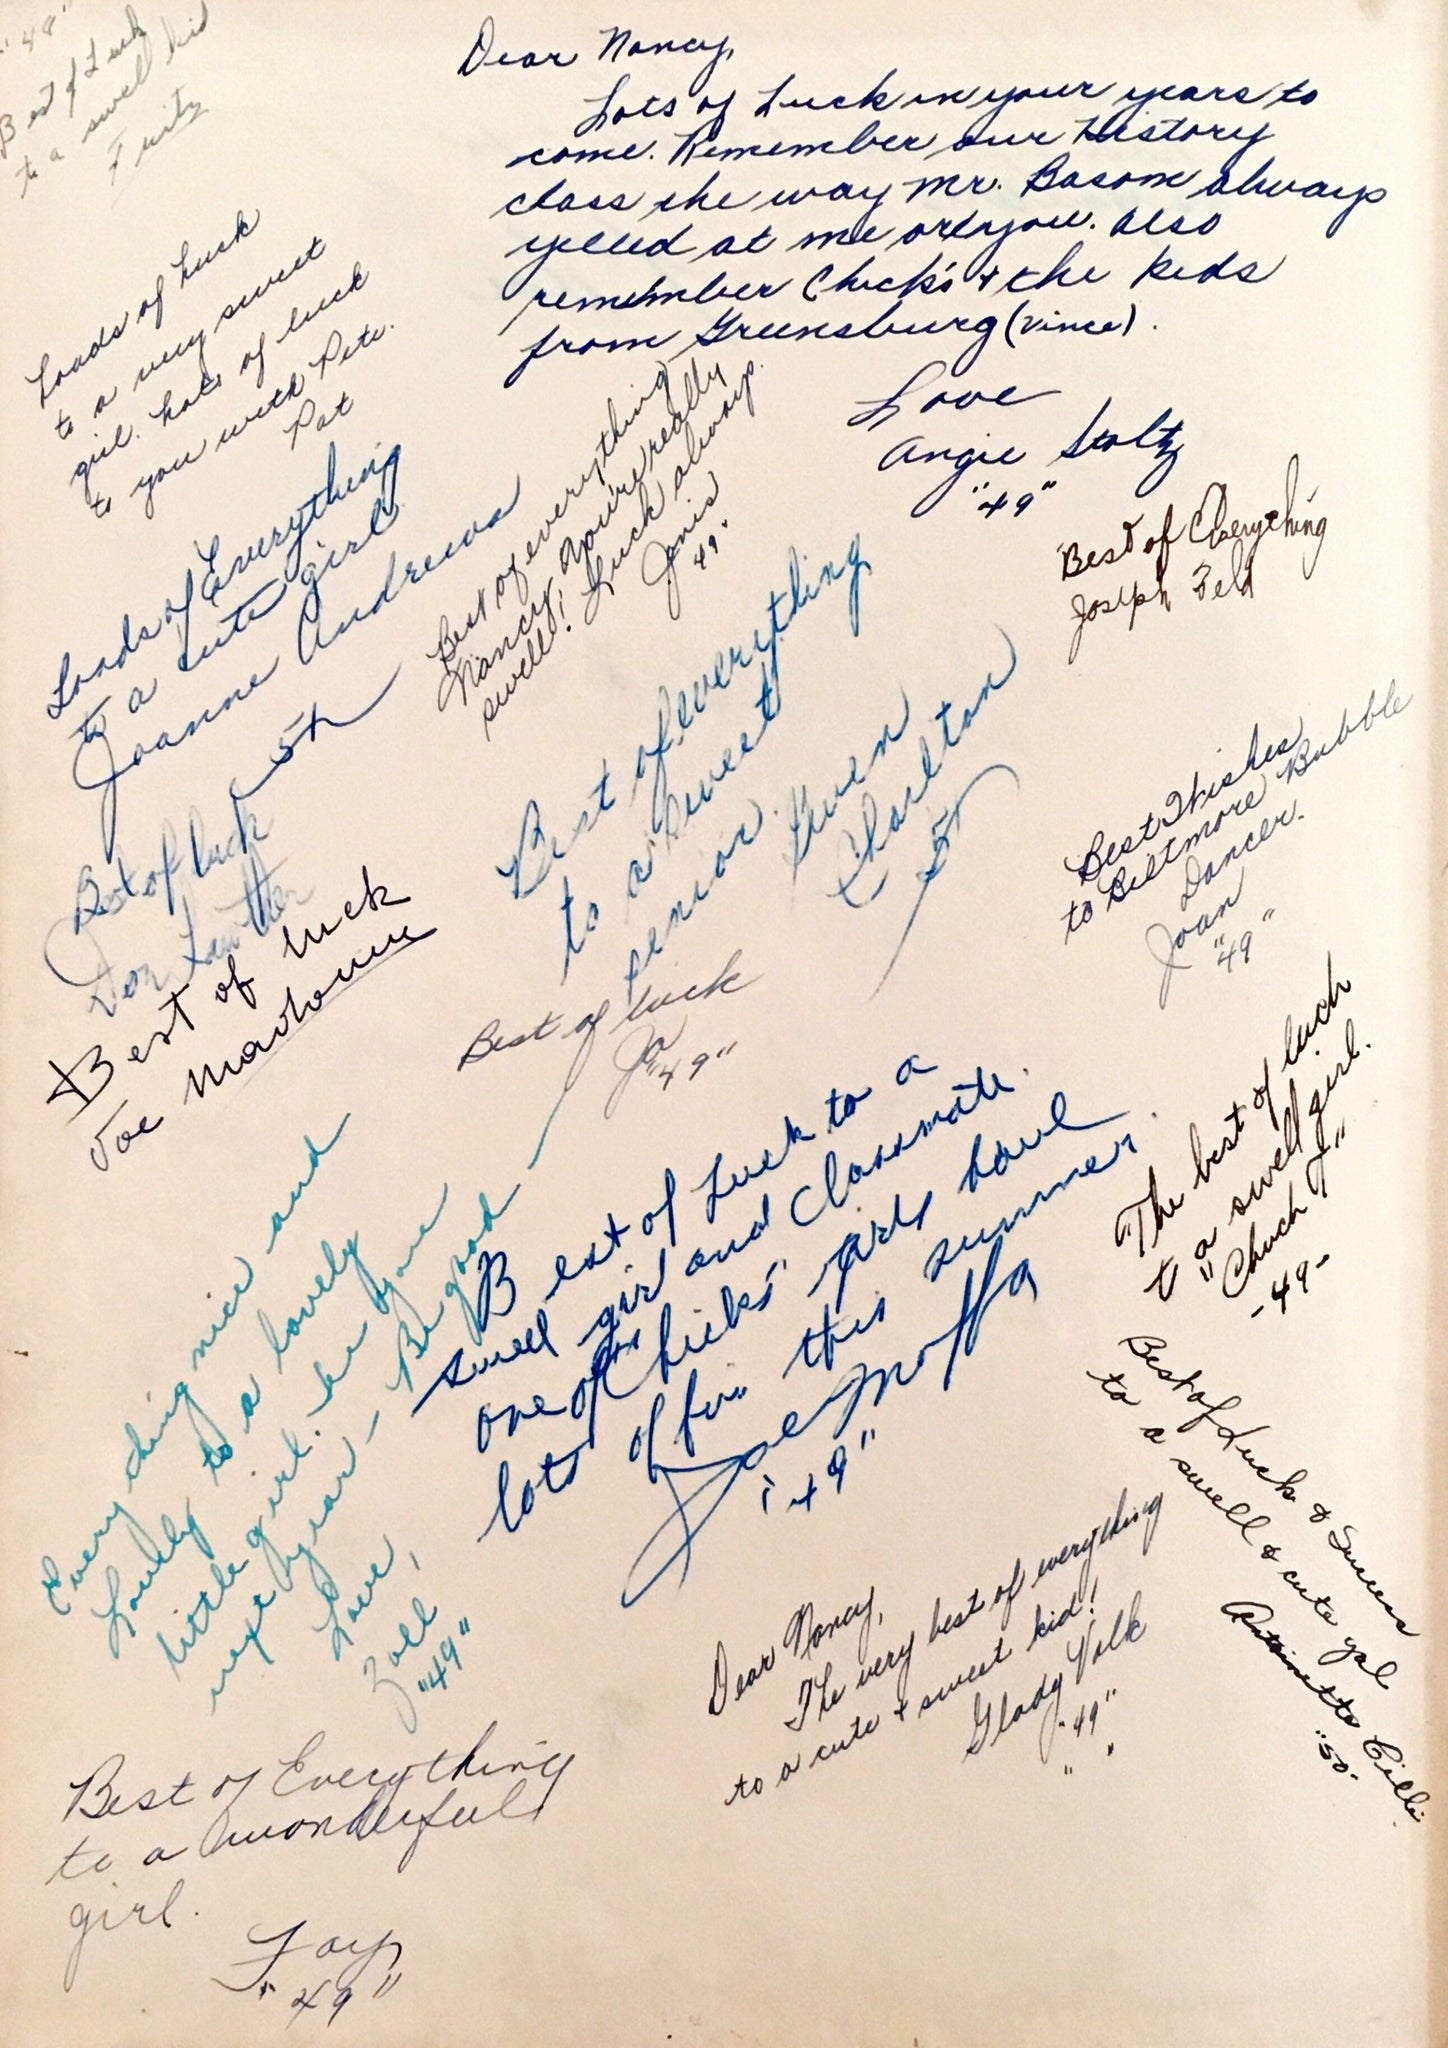 "48"
Best of Luck
to a swell kid
Fritz
Dear Nancy,
Lots of Luck in your years to
come. Remember our History
class the way Mr. Basom always
yelled at me or you. Also
remember Chick's + the kids
from Greensburg (Vince).
Love
Angie Stoltz
"49"
Loads of Luck
to a very sweet
girl. Lots of luck
to you with Pete.
Pat
Loads of Everything
to a cute girl
Joanne Andrews
Best of everything
Nancy. You're really
swell! Luck always.
Janis
"49"
Best of Everything
Joseph Feld
Best of luck
Don Lauther
Best of everything
to a sweet
senior. Gwen
Charlton
Best Wishes
to Biltmore Bubble
Dancer.
Joan
"49"
Best of luck
Joe
Best of luck
Jo
"49"
"The best of luck
to a swell girl.
"Chuck J"
-49-
Every thing nice and
Lovely to a lovely
little girl. be
next year - Be good
Love,
Zoel
"49"
Best of Luck to a
swell girl and Classmate.
one of "Chicks" girls have
lots of fun this summer.
Joe Moffa
"49"
Best of Luck & Success
to a swell & cute gal
Antoinette Cilli
"50"
Dear Nancy,
The very best of everything
to a cute + sweet kid!
Glady Volk
"49"
Best of Everything
to a wonderful
girl.
Fay
"49"